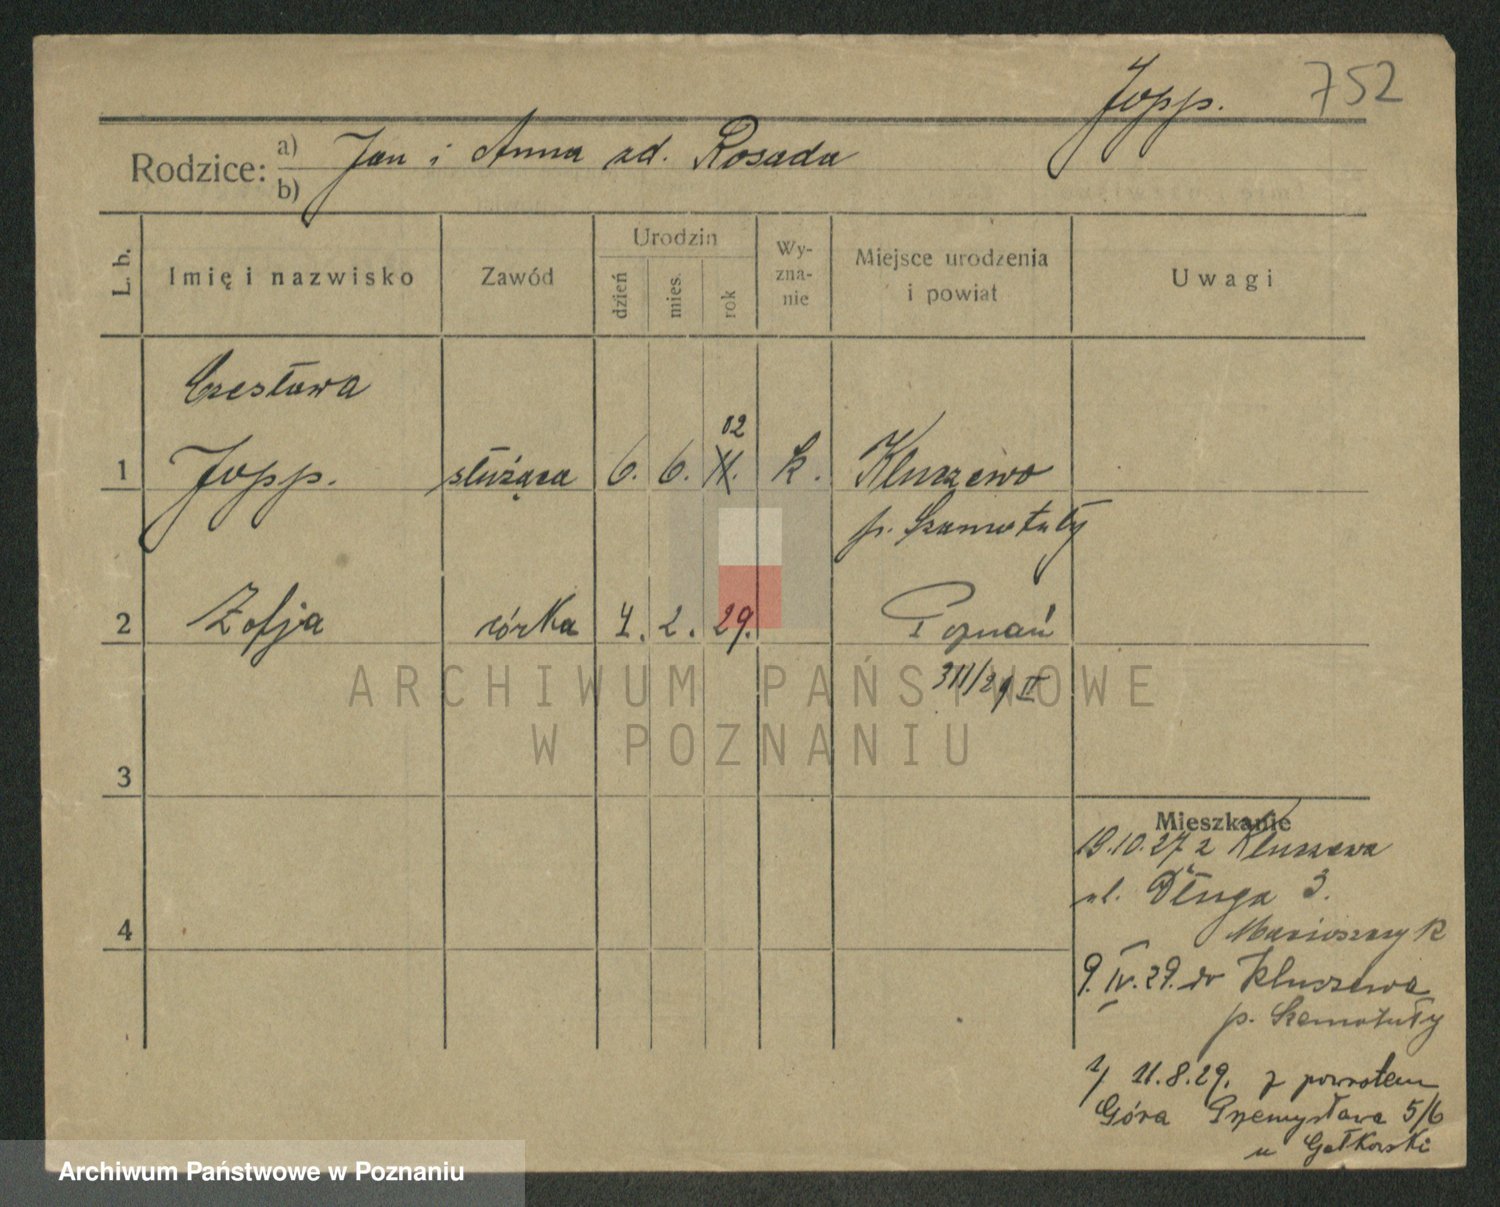 Jopp. 752
Rodzice: a) b) Jan i Anna zd. Rosada
L. b. Imię i nazwisko Zawód Urodzin dzień mies. rok Wyznanie Miejsce urodzenia i powiat Uwagi
Czesława
02
1 Jopp. służąca 6. 6. k. Kluszewo
p. Szamotuły
2 Zofja córka 4. 2. 29. Poznań
311/29 II
3
Mieszkanie
19.10.27 z Kluszewa
ul. Długa 3.
4
9.IV.29. do Kluszewa
p. Szamotuły
1/ 11.8.29. z powrotem
Góra Przemysława 5/6
u Gałkowski
ARCHIWUM PAŃSTWOWE
W POZNANIU
Archiwum Państwowe w Poznaniu